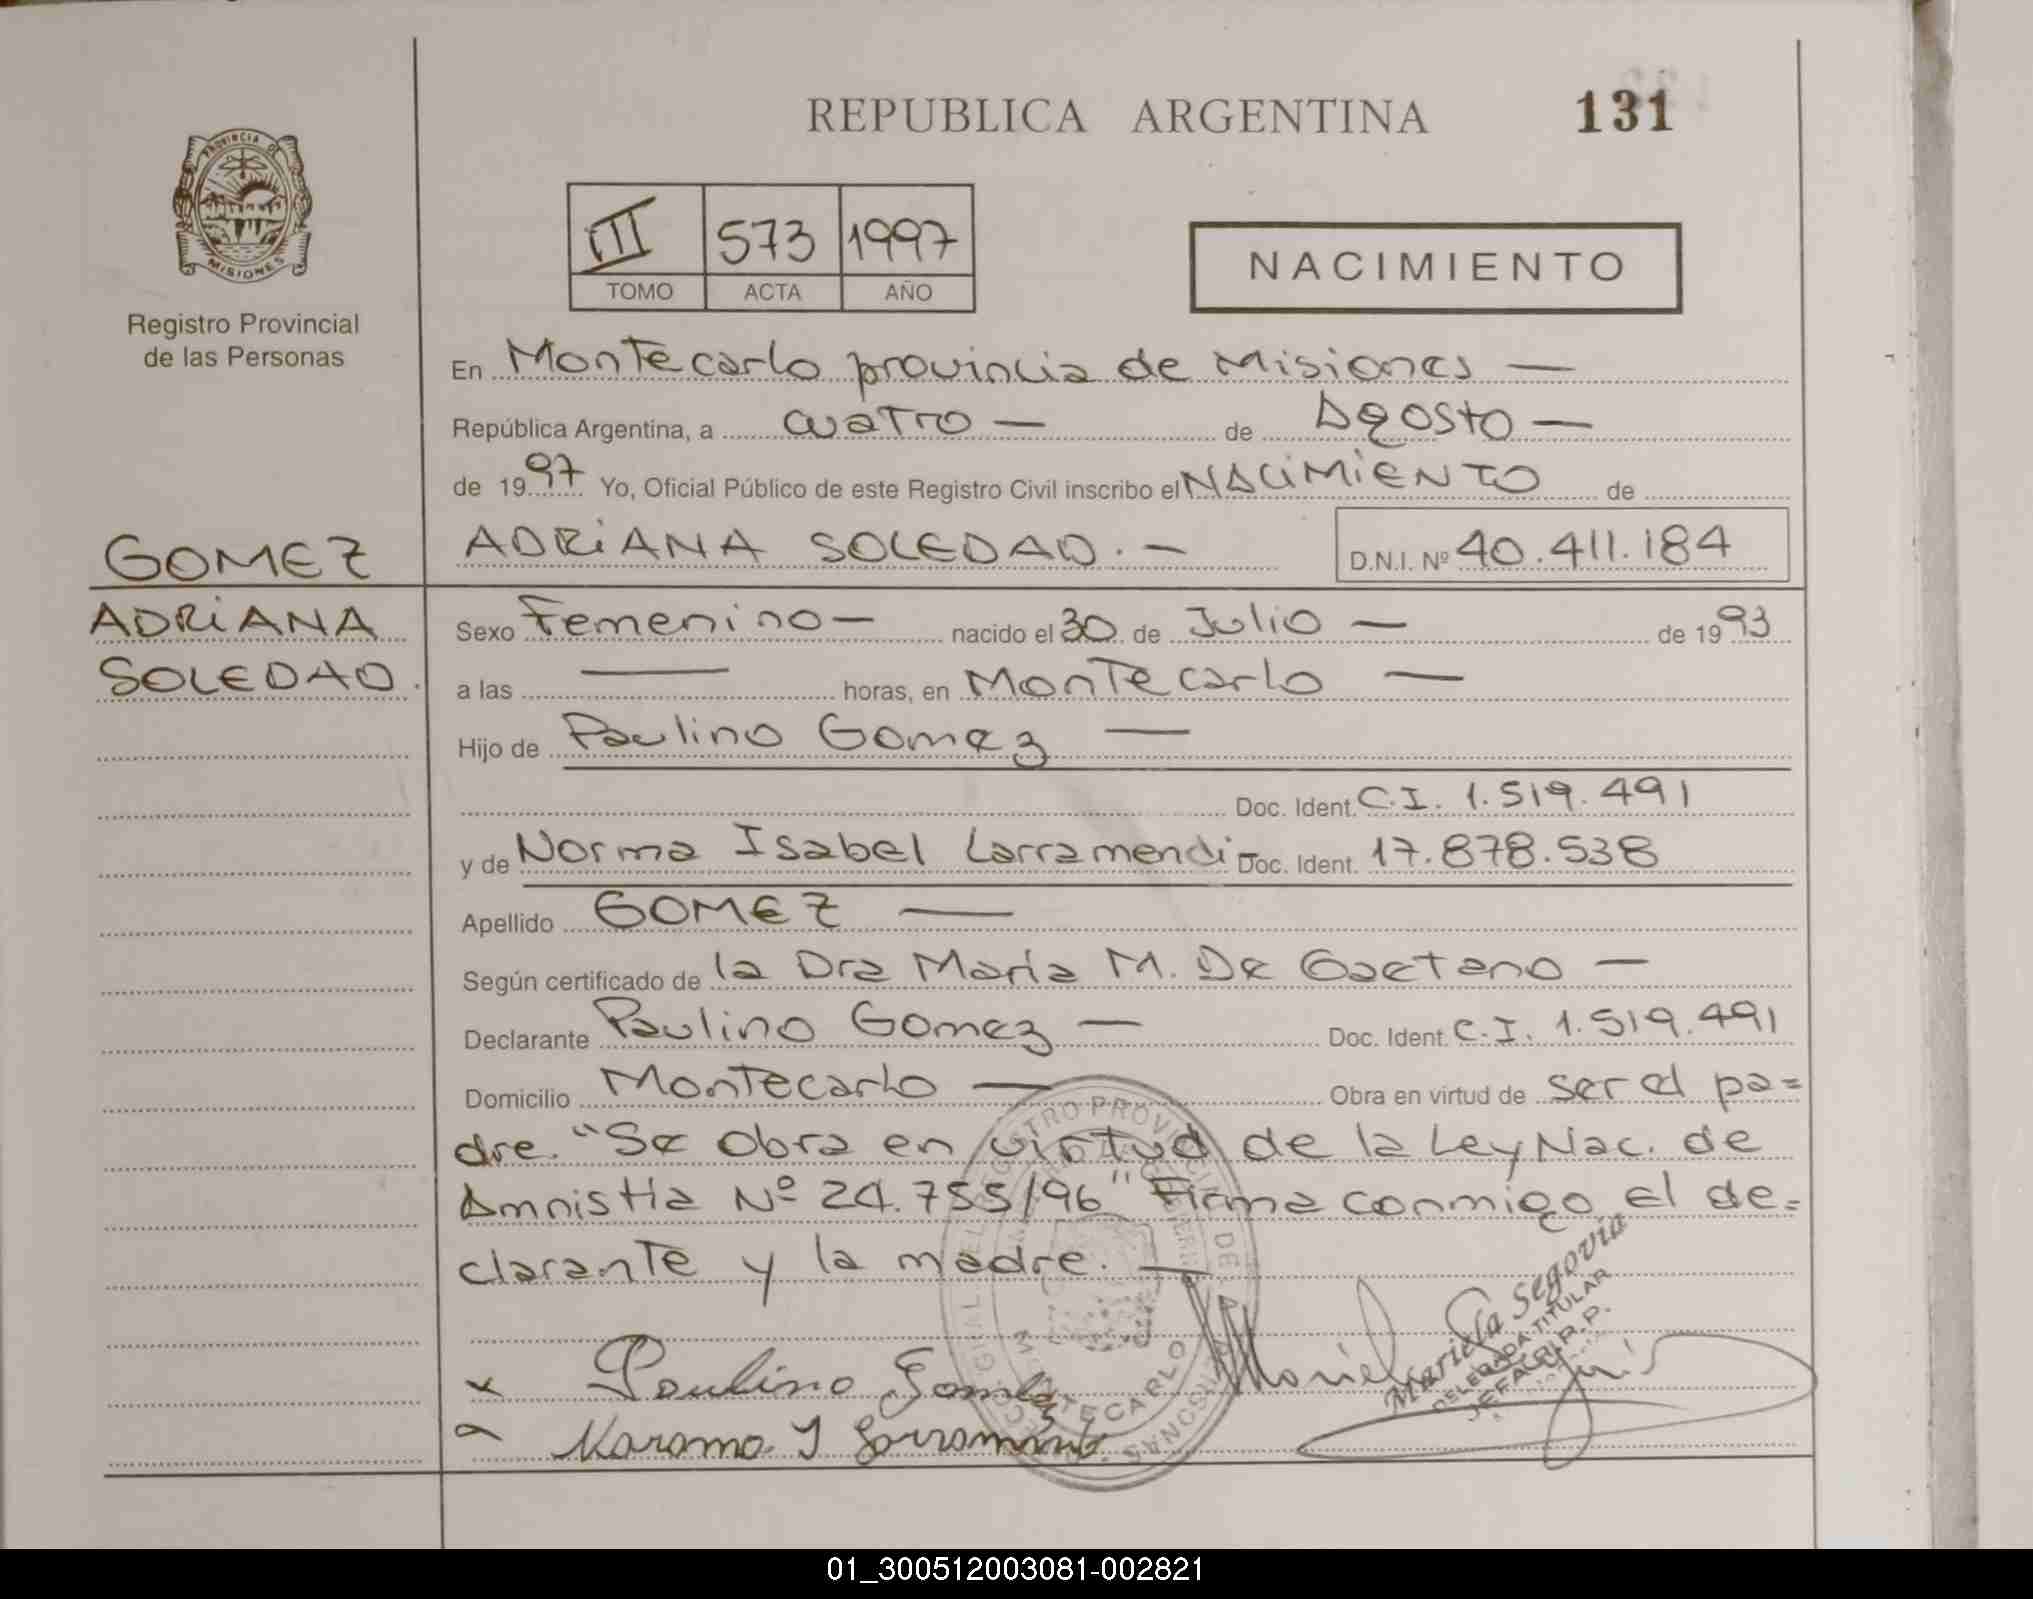 REPUBLICA ARGENTINA 131
PROVINCIA DE MISIONES
Registro Provincial
de las Personas
III 573 1997
TOMO ACTA AÑO
NACIMIENTO
En Montecarlo provincia de Misiones —
República Argentina, a cuatro — de Agosto —
de 1997 Yo, Oficial Público de este Registro Civil inscribo el NACIMIENTO de
ADRIANA SOLEDAD. — D.N.I. Nº 40.411.184
GOMEZ
ADRIANA
SOLEDAD.
Sexo Femenino — nacido el 30 de Julio — de 1993
a las — horas, en Montecarlo —
Hijo de Paulino Gomez —
Doc. Ident. C.I. 1.519.491
y de Norma Isabel Larramendi — Doc. Ident. 17.878.538
Apellido GOMEZ —
Según certificado de la Dra Maria M. De Gaetano —
Declarante Paulino Gomez — Doc. Ident. C.I. 1.519.491
Domicilio Montecarlo — Obra en virtud de ser el pa=
dre. "Se obra en virtud de la Ley Nac. de
Amnistia Nº 24.755/96" Firma conmigo el de=
clarante y la madre. —
x Paulino Gomez
Mariela Segovia
DELEGADA TITULAR
JEFA R.P.P.
MONTECARLO
01_300512003081-002821